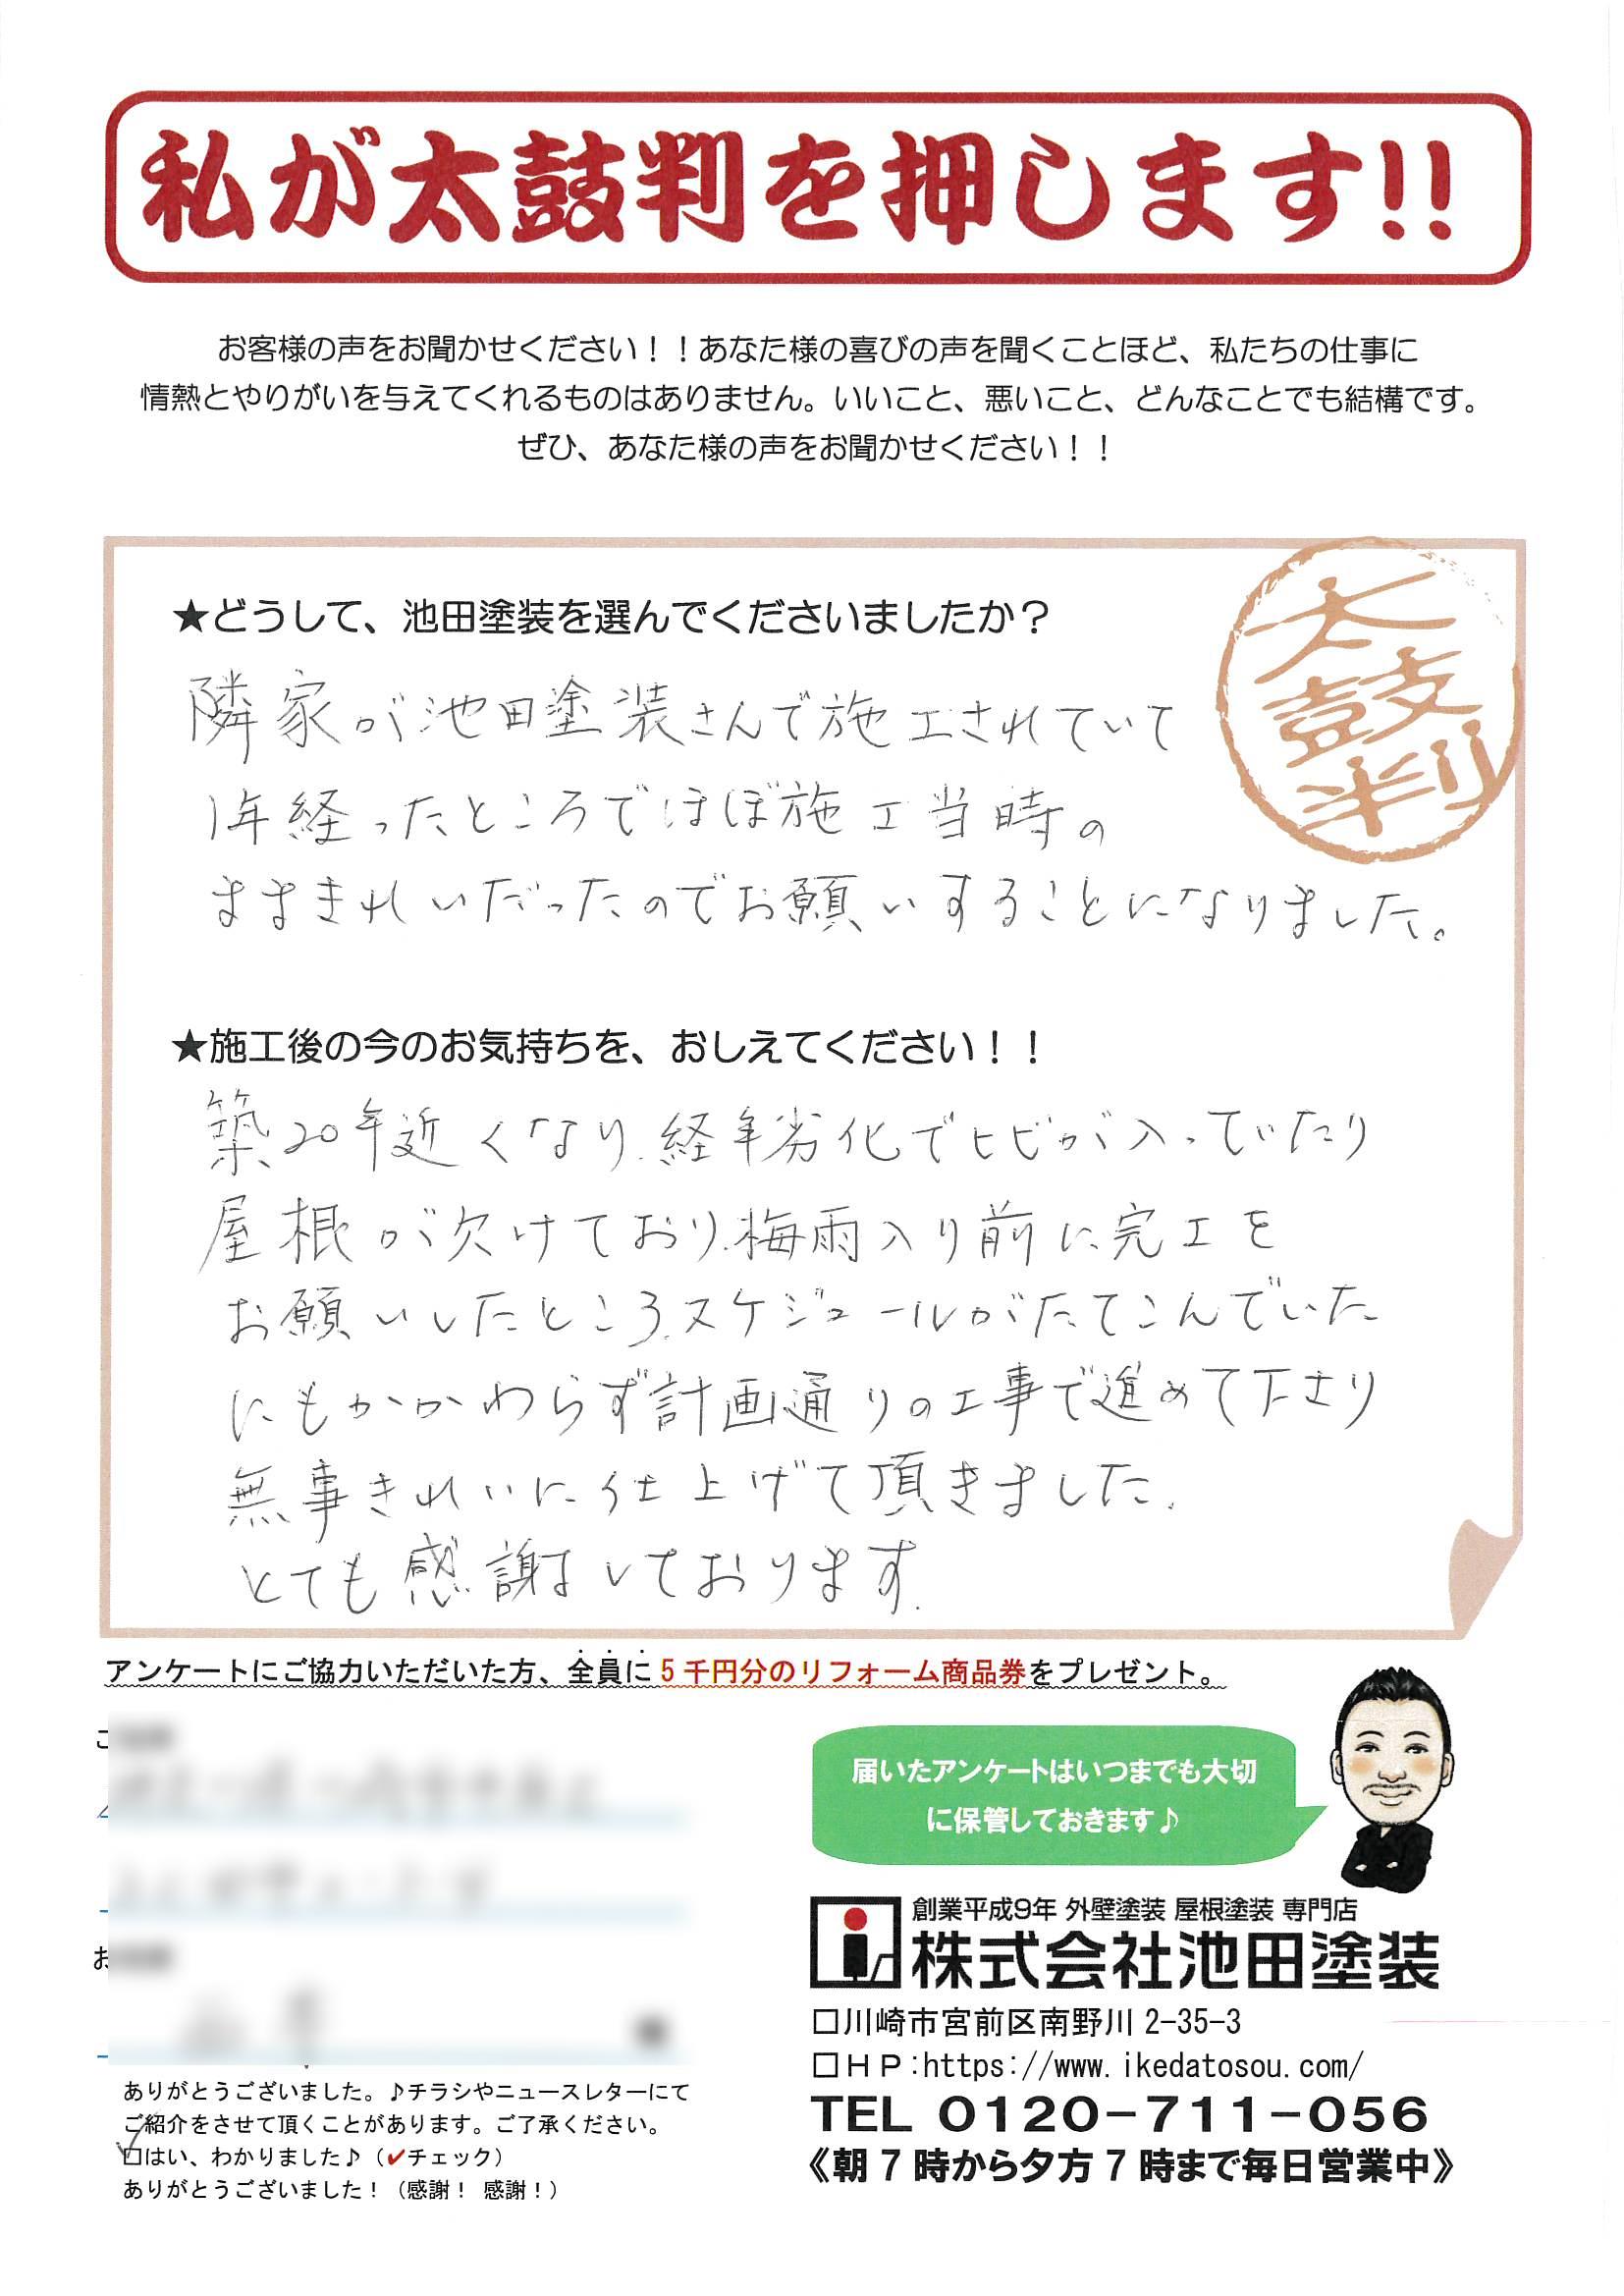 私が太鼓判を押します!!
お客様の声をお聞かせください！！あなた様の喜びの声を聞くことほど、私たちの仕事に
情熱とやりがいを与えてくれるものはありません。いいこと、悪いこと、どんなことでも結構です。
ぜひ、あなた様の声をお聞かせください！！
太鼓判
★どうして、池田塗装を選んでくださいましたか？
隣家が池田塗装さんで施工されていて
1年経ったところでほぼ施工当時の
ままきれいだったのでお願いすることになりました。
★施工後の今のお気持ちを、おしえてください！！
築20年近くなり、経年劣化でヒビが入っていたり
屋根が欠けており、梅雨入り前に完工を
お願いしたところ、スケジュールがたてこんでいた
にもかかわらず計画通りの工事で進めて下さり
無事きれいに仕上げて頂きました。
とても感謝しております。
アンケートにご協力いただいた方、全員に5千円分のリフォーム商品券をプレゼント。
届いたアンケートはいつまでも大切
に保管しておきます♪
創業平成9年 外壁塗装 屋根塗装 専門店
株式会社池田塗装
□川崎市宮前区南野川2-35-3
□ＨＰ:https://www.ikedatosou.com/
TEL 0120-711-056
《朝7時から夕方7時まで毎日営業中》
ありがとうございました。♪チラシやニュースレターにて
ご紹介をさせて頂くことがあります。ご了承ください。
□はい、わかりました♪（✔チェック）
ありがとうございました！（感謝！ 感謝！）